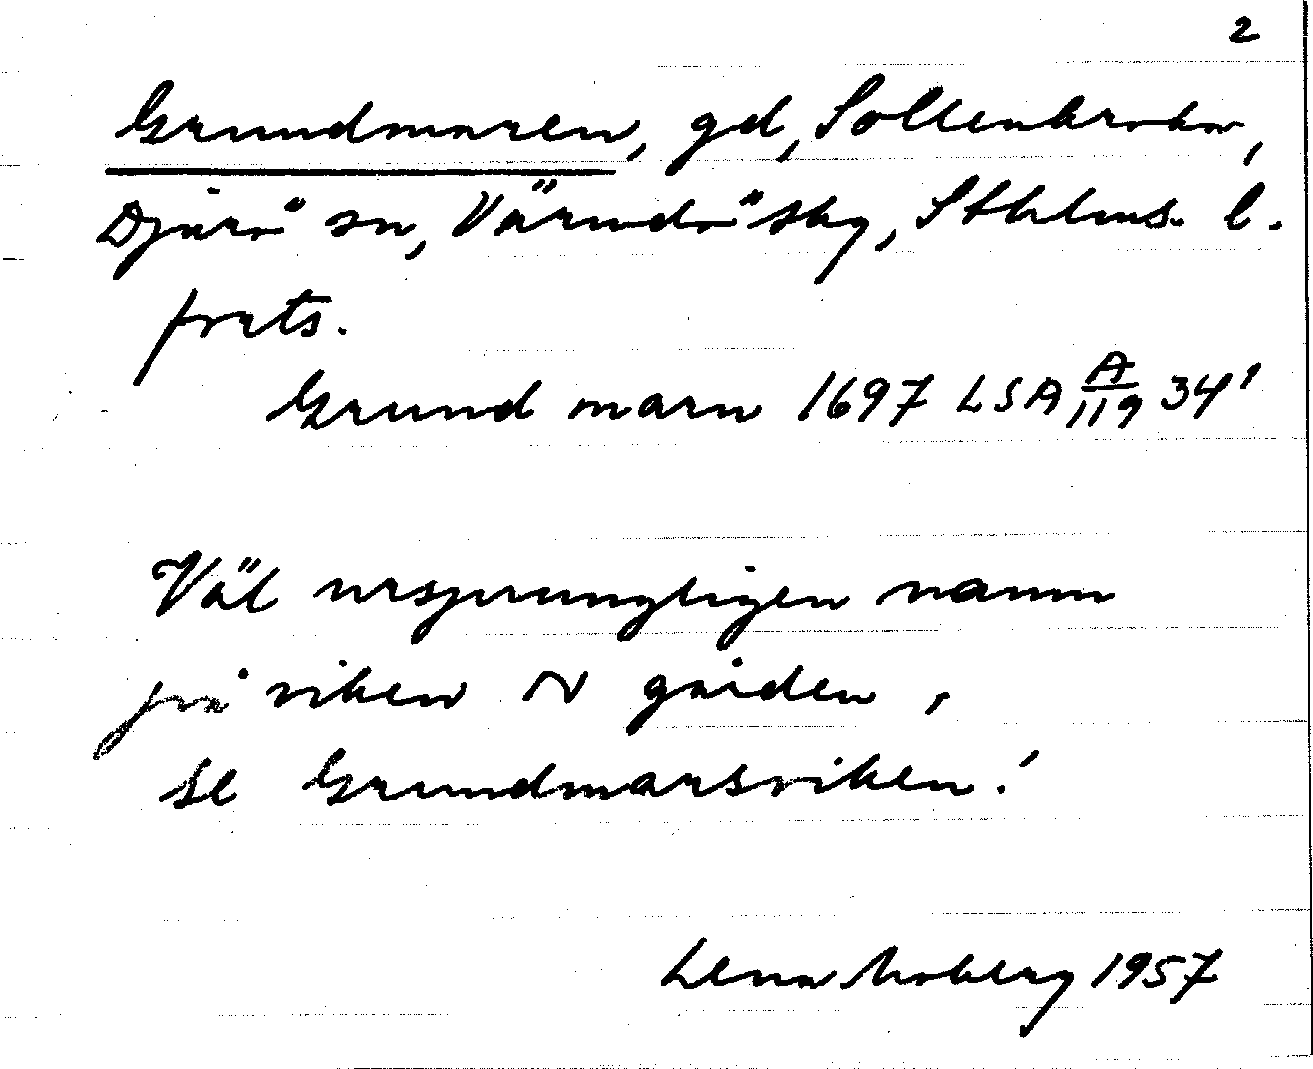 2
Grundmaren, gd, Sollenkroka,
Djurö sn, Värmdö skg, Sthlms. l.
forts.
Grund marn 1697 LSA A/119 34¹
Väl ursprungligen namn
på viken N gården,
se Grundmarsviken!
Lena Moberg 1957